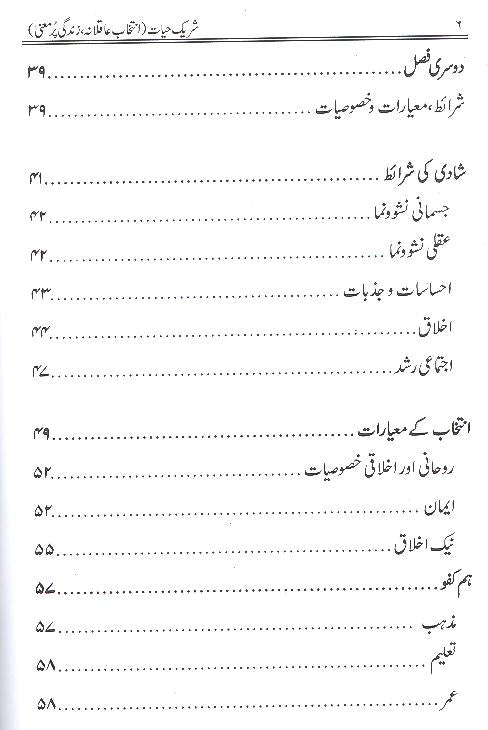 ۶ شریک حیات (انتخاب عاقلانہ، زندگی پُر معنی)
دوسری فصل ........................................ ۳۹
شرائط، معیارات و خصوصیات .............................. ۳۹
شادی کی شرائط ...................................... ۴۱
جسمانی نشوونما .................................... ۴۲
عقلی نشوونما ...................................... ۴۲
احساسات و جذبات ................................. ۴۳
اخلاق .......................................... ۴۴
اجتماعی رشد ...................................... ۴۷
انتخاب کے معیارات ................................. ۴۹
روحانی اور اخلاقی خصوصیات ............................ ۵۲
ایمان .......................................... ۵۲
نیک اخلاق ....................................... ۵۵
ہم کفو .......................................... ۵۷
مذہب .......................................... ۵۷
تعلیم .......................................... ۵۸
عمر ............................................ ۵۸